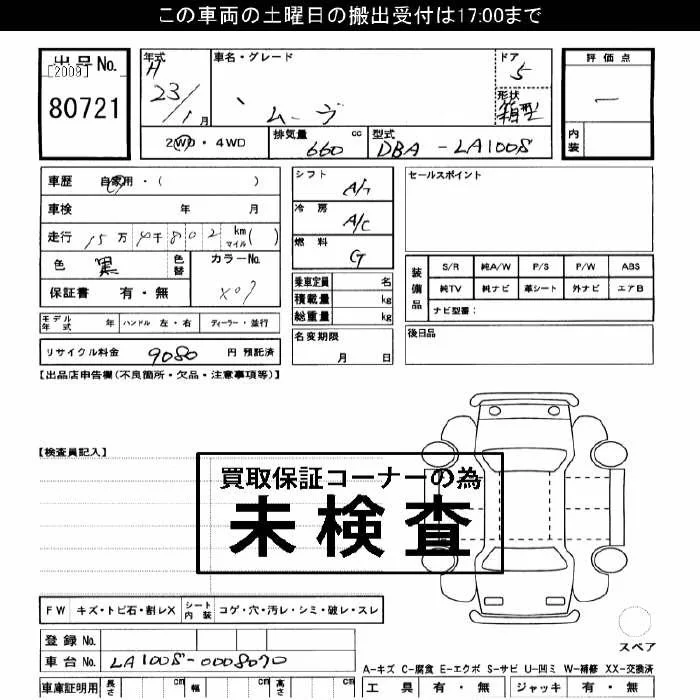 この車両の土曜日の搬出受付は17:00まで
出品No.
[2009]
80721
年式
H
23/1月
車名・グレード
ムーヴ
ドア
5
形状
箱型
評価点
一
内装
2WD・4WD
排気量
660 cc
型式
DBA-LA100S
車歴 自家用・( )
車検 年 月
走行 15万 4千 802 km マイル( )
色 黒
色替
カラーNo.
X07
保証書 有・無
シフト
A/T
冷房
A/C
燃料
G
乗車定員 名
積載量 kg
総重量 kg
セールスポイント
装備品
S/R 純A/W P/S P/W ABS
純TV 純ナビ 革シート 外ナビ エアB
ナビ型番:
モデル年式 年 ハンドル 左・右 ディーラー・並行
名変期限
月 日
後日品
リサイクル料金 9080 円 預託済
【出品店申告欄(不良箇所・欠品・注意事項等)】
【検査員記入】
買取保証コーナーの為
未検査
FW キズ・トビ石・割レX シート内装 コゲ・穴・汚レ・シミ・破レ・スレ
スペア
登録No.
車台No. LA100S-0008070
A-キズ C-腐食 E-エクボ S-サビ U-凹ミ W-補修 XX-交換済
車庫証明用 長さ cm 幅 cm 高さ cm
工具 有・無 ジャッキ 有・無